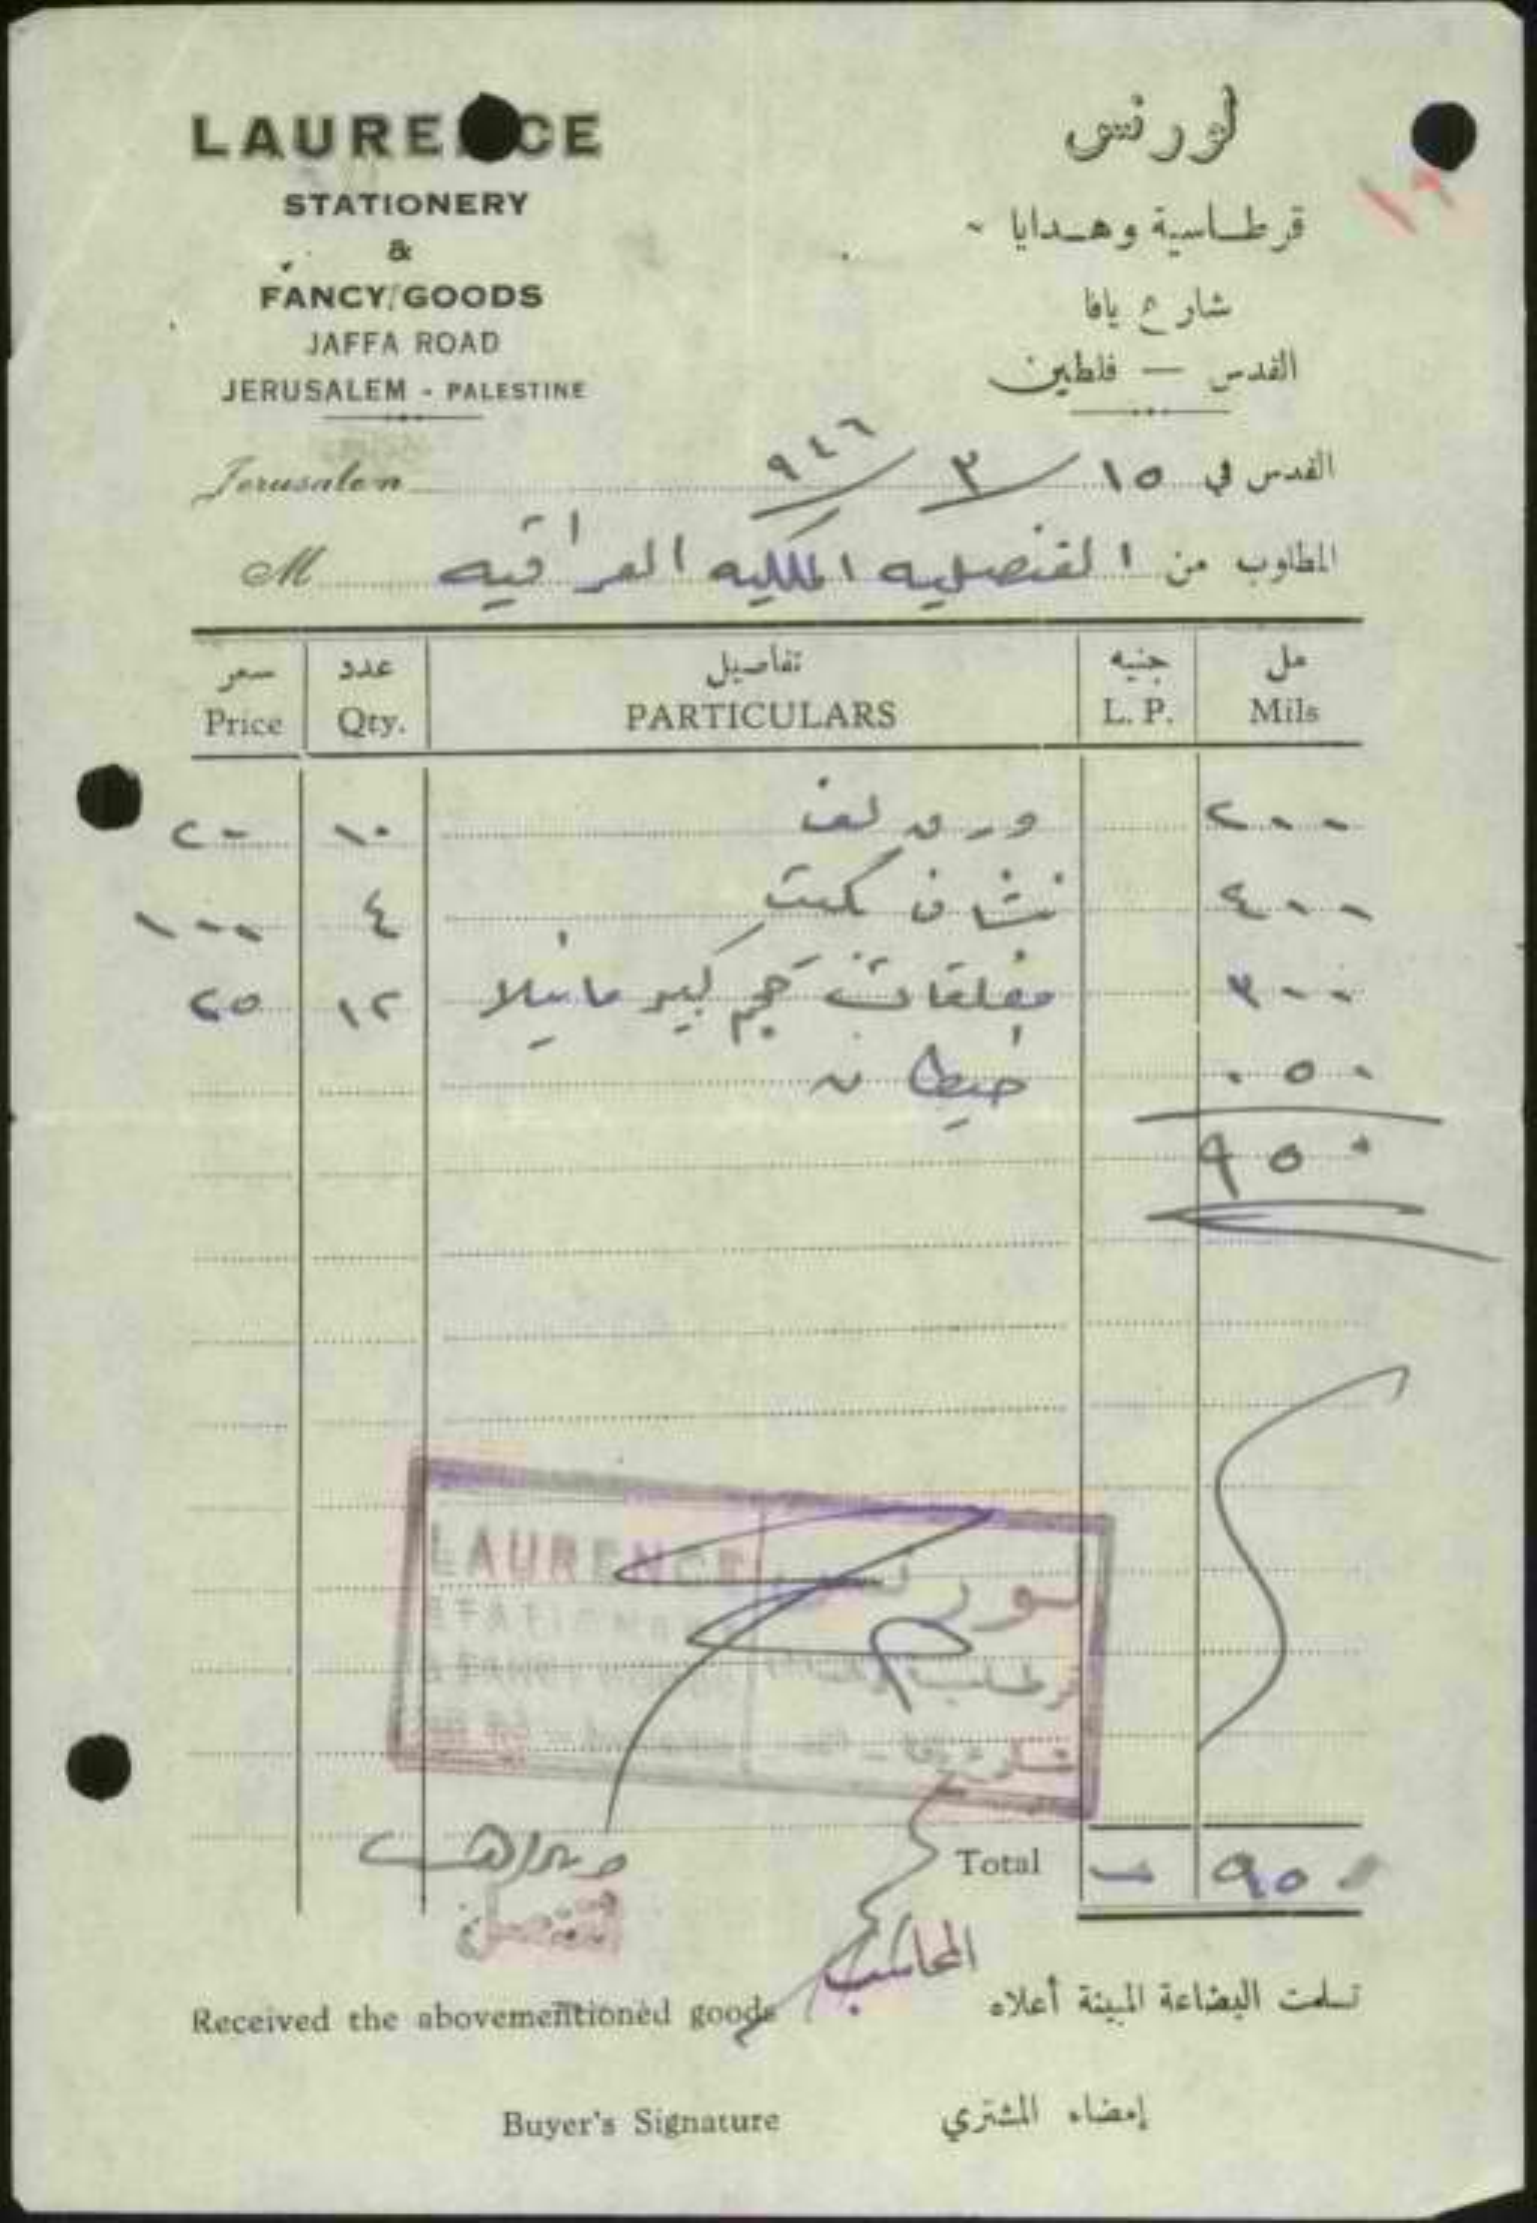 LAURENCE
STATIONERY
&
FANCY GOODS
JAFFA ROAD
JERUSALEM - PALESTINE
لورنس
قرطاسية وهدايا
شارع يافا
القدس — فلطين
١٩
Jerusalem القدس في ١٥/٣/٩٤٦
M المطلوب من القنصليه الملكيه العراقيه
سعر عدد تفاصيل جنيه مل
Price Qty. PARTICULARS L. P. Mils
٢٠ ١٠ ورق لف ٢٠٠
١٠٠ ٤ نشاف كبت ٤٠٠
٢٥ ١٢ مغلفات حجم كبير مانيلا ٣٠٠
خيطان ٠٥٠
٩٥٠
LAURENCE لورنس
STATIONERY
شارع يافا
Total — ٩٥٠
القنصل
المحاسب
Received the abovementioned goods تسلمت البضاعة المبينة أعلاه
Buyer's Signature إمضاء المشتري